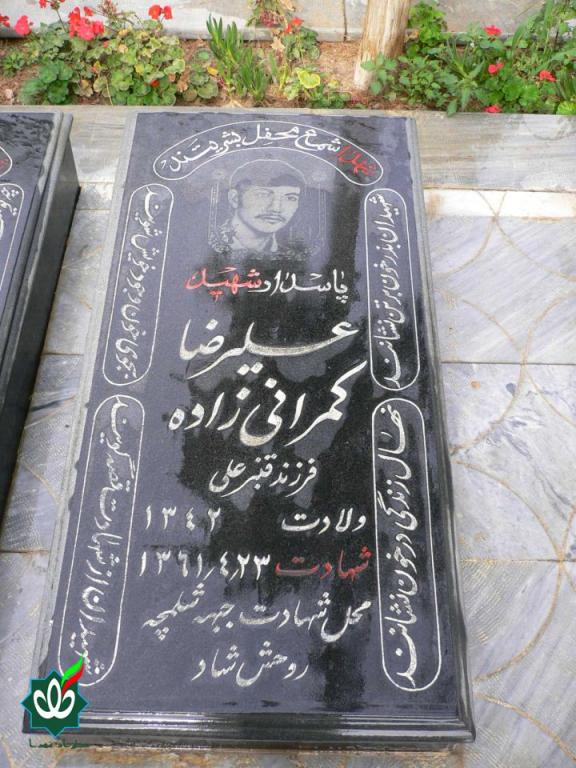 شهدا شمع محفل بشریتند
پاسدار شهید
علیرضا
کمرانی زاده
فرزند قنبر علی
ولادت ۱۳۴۲
شهادت ۱۳۶۱/۴/۲۳
محل شهادت جبهه شلمچه
روحش شاد
شهیدان بذر خون بر تن نشانند
نهال زندگی در خون نشانند